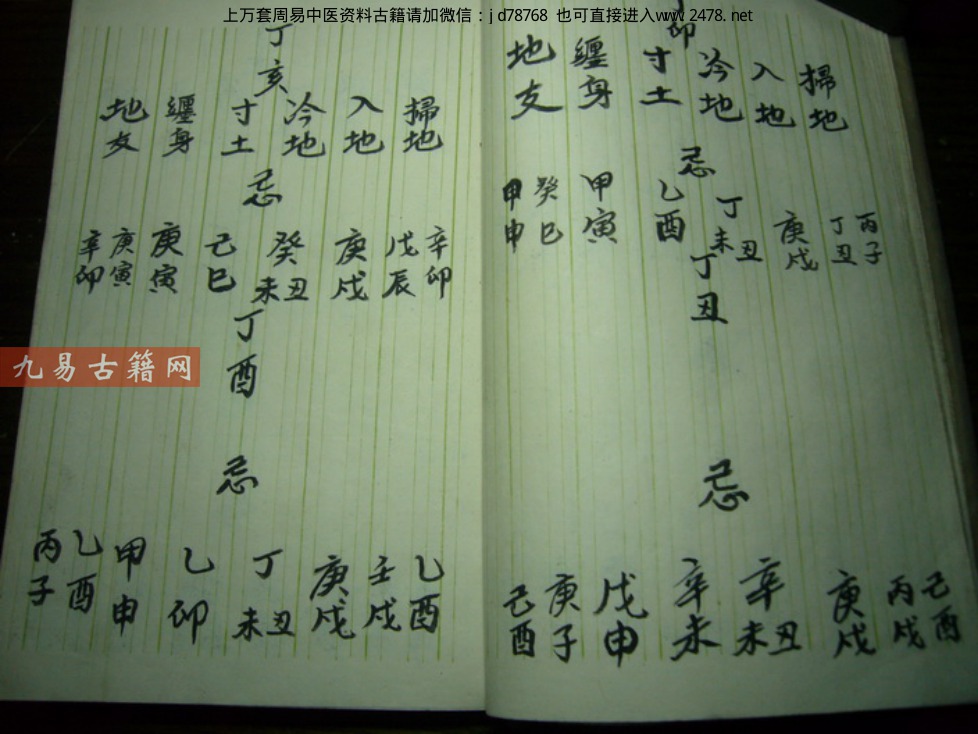 上万套周易中医资料古籍请加微信：jd78768 也可直接进入www.2478.net
九易古籍网
丁卯
掃地
入地
冷地
寸土
纏身
地支
忌
丙子
丁丑
庚戌
丁未丑
乙酉
甲寅
癸巳
甲申
丁丑
忌
己酉
丙戌
庚戌
辛未丑
辛未
戊申
庚子
己酉
丁亥
掃地
入地
冷地
寸土
纏身
地支
忌
辛卯
戊辰
庚戌
癸未丑
己巳
庚寅
庚寅
辛卯
丁酉
忌
乙酉
壬戌
庚戌
丁未丑
乙卯
甲申
乙酉
丙子